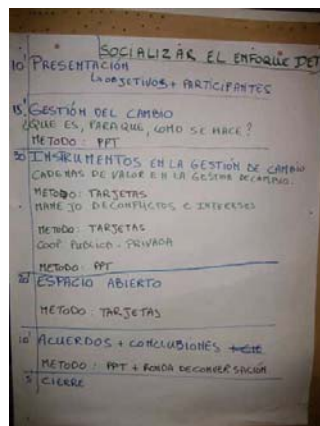 SOCIALIZAR EL ENFOQUE DET
10' PRESENTACIÓN
↳ OBJETIVOS + PARTICIPANTES
15' GESTIÓN DEL CAMBIO
¿QUE ES, PARA QUE, COMO SE HACE?
METODO: PPT
30' INSTRUMENTOS EN LA GESTIÓN DE CAMBIO
CADENAS DE VALOR EN LA GESTION DE CAMBIO.
METODO: TARJETAS
MANEJO DE CONFLICTOS E INTERESES
METODO: TARJETAS
COOP PUBLICO - PRIVADA
METODO: PPT
20' ESPACIO ABIERTO
METODO: TARJETAS
10' ACUERDOS + CONCLUSIONES
METODO: PPT + RONDA DE CONVERSACIÓN
5 CIERRE